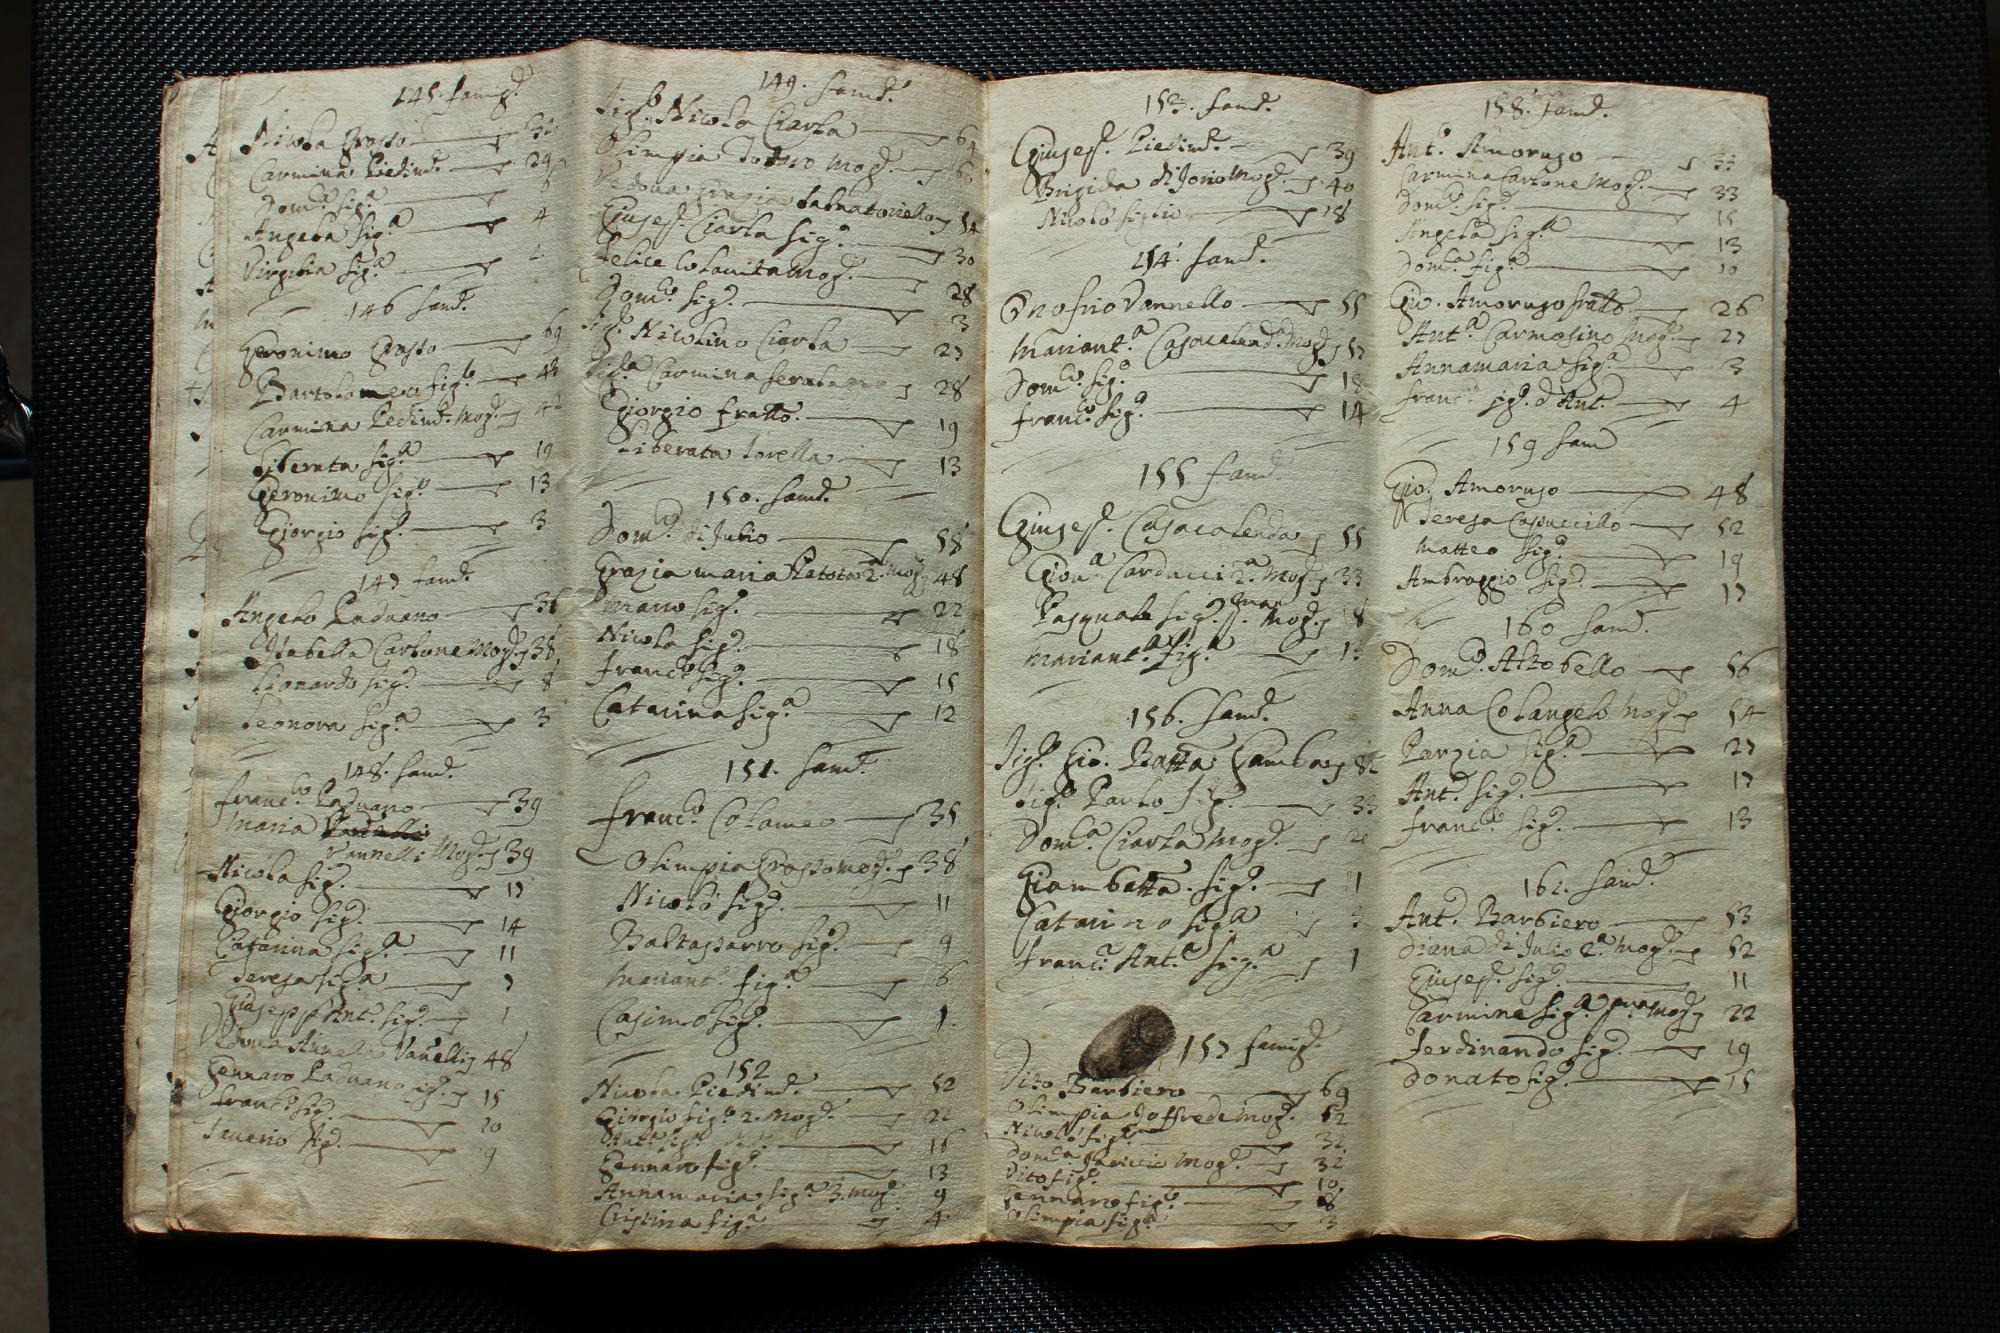 145. famig.ª
Nicola Grosso 32
Carmina Piedim.e 29
Dom.ª fig.ª
Angela fig.ª 4
Virgilia fig.ª
146 fam.ª
Geronimo Grosso 69
Bartolomeo fig.lo 42
Carmina Piedim.e Mog.e 42
Liberata fig.ª 19
Geronimo fig.o 13
Giorgio fig.o 3
147 fam.ª
Angelo Paduano 36
Isabella Carbone Mog.e 38
Leonardo fig.o 8
Leonora fig.ª 3
148. fam.ª
Fran.co Paduano 39
Maria
Vannelli Mog.e 39
Nicola fig.o 17
Giorgio fig.o 14
Catarina fig.ª 11
Teresa fig.ª 7
Giuseppe Ant.o fig.o 1
Vedova Vanelli 48
Gennaro Paduano fig.o 15
Fran.co fig.o 20
Saverio fig.o 9
149. fam.ª
Sig.r Nicola Ciarla 64
Olimpia Mog.e
Vedova Grazia 54
Giusep.e Ciarla fig.o 30
Felice Colavita Mog.e 28
Dom.co fig.o 3
Sig.r Nicolino Ciarla 27
Carmina Mog.e 28
Giorgio fratto 19
Liberata Iorella 13
150. fam.ª
Dom.co di Julio 58
Grazia maria 2.ª Mog.e 48
fig.o 22
Nicola fig.o 18
Fran.co fig.o 15
Catarina fig.ª 12
151. fam.ª
Fran.co Colameo 35
Olimpia Grosso Mog.e 38
Nicolò fig.o 11
Baltassarro fig.o 9
Mariant.ª fig.ª 6
Casimo fig.o 1
152
Nicola Piedim.e 52
Giorgio fig.o 2. Mog.e 22
Ant.o fig.o 16
Gennaro fig.o 13
Annamaria fig.ª 3. Mog.e 9
Cristina fig.ª 4
153. fam.ª
Giusep.e Piedim.e 39
Brigida di Iorio Mog.e 40
Nicolò figlio 18
154. fam.ª
Onofrio Vannello 55
Mariant.ª Casacalenda Mog.e 57
Dom.co fig.o 18
Fran.co fig.o 14
155 fam.ª
Giusep.e Casacalenda 55
Giov.ª Carducci 2.ª Mog.e 33
Pasquale fig.o p.ma Mog.e 18
Mariant.ª fig.ª 13
156. fam.ª
Sig.r Gio. Batta Gamba
Sig.r Paolo fig.o 33
Dom.ª Ciarla Mog.e
Giambatta fig.o 1
Catarina fig.ª 3
Fran.ca Ant.ª fig.ª 1
157 famig.ª
Vito Barbiero 69
Olimpia Joffreda Mog.e 62
Nicolò fig.o 32
Dom.ª Mog.e 32
Vito fig.o 10
Gennaro fig.o 8
Olimpia fig.ª 3
158. fam.ª
Ant.o Amoruso 33
Carmina Carbone Mog.e 33
Dom.co fig.o 15
Angela fig.ª 13
Dom.ª fig.ª 10
Gio. Amoruso fratto 26
Ant.ª Carmosino Mog.e 27
Annamaria fig.ª 3
Fran.co fig.o d'Ant.o 4
159 fam
Gio. Amoruso 48
Teresa Capuccillo 52
Matteo fig.o 19
Ambroggio fig.o 17
160 fam.
Dom.co Altobello 56
Anna Colangelo Mog.e 54
Porzia fig.ª 27
Ant.o fig.o 17
Fran.co fig.o 13
161. fam.ª
Ant.o Barbiero 53
Diana di Julio 2.ª Mog.e 52
Giusep.e fig.o 11
Carmine fig.o p.ma Mog.e 22
Ferdinando fig.o 19
Donato fig.o 15